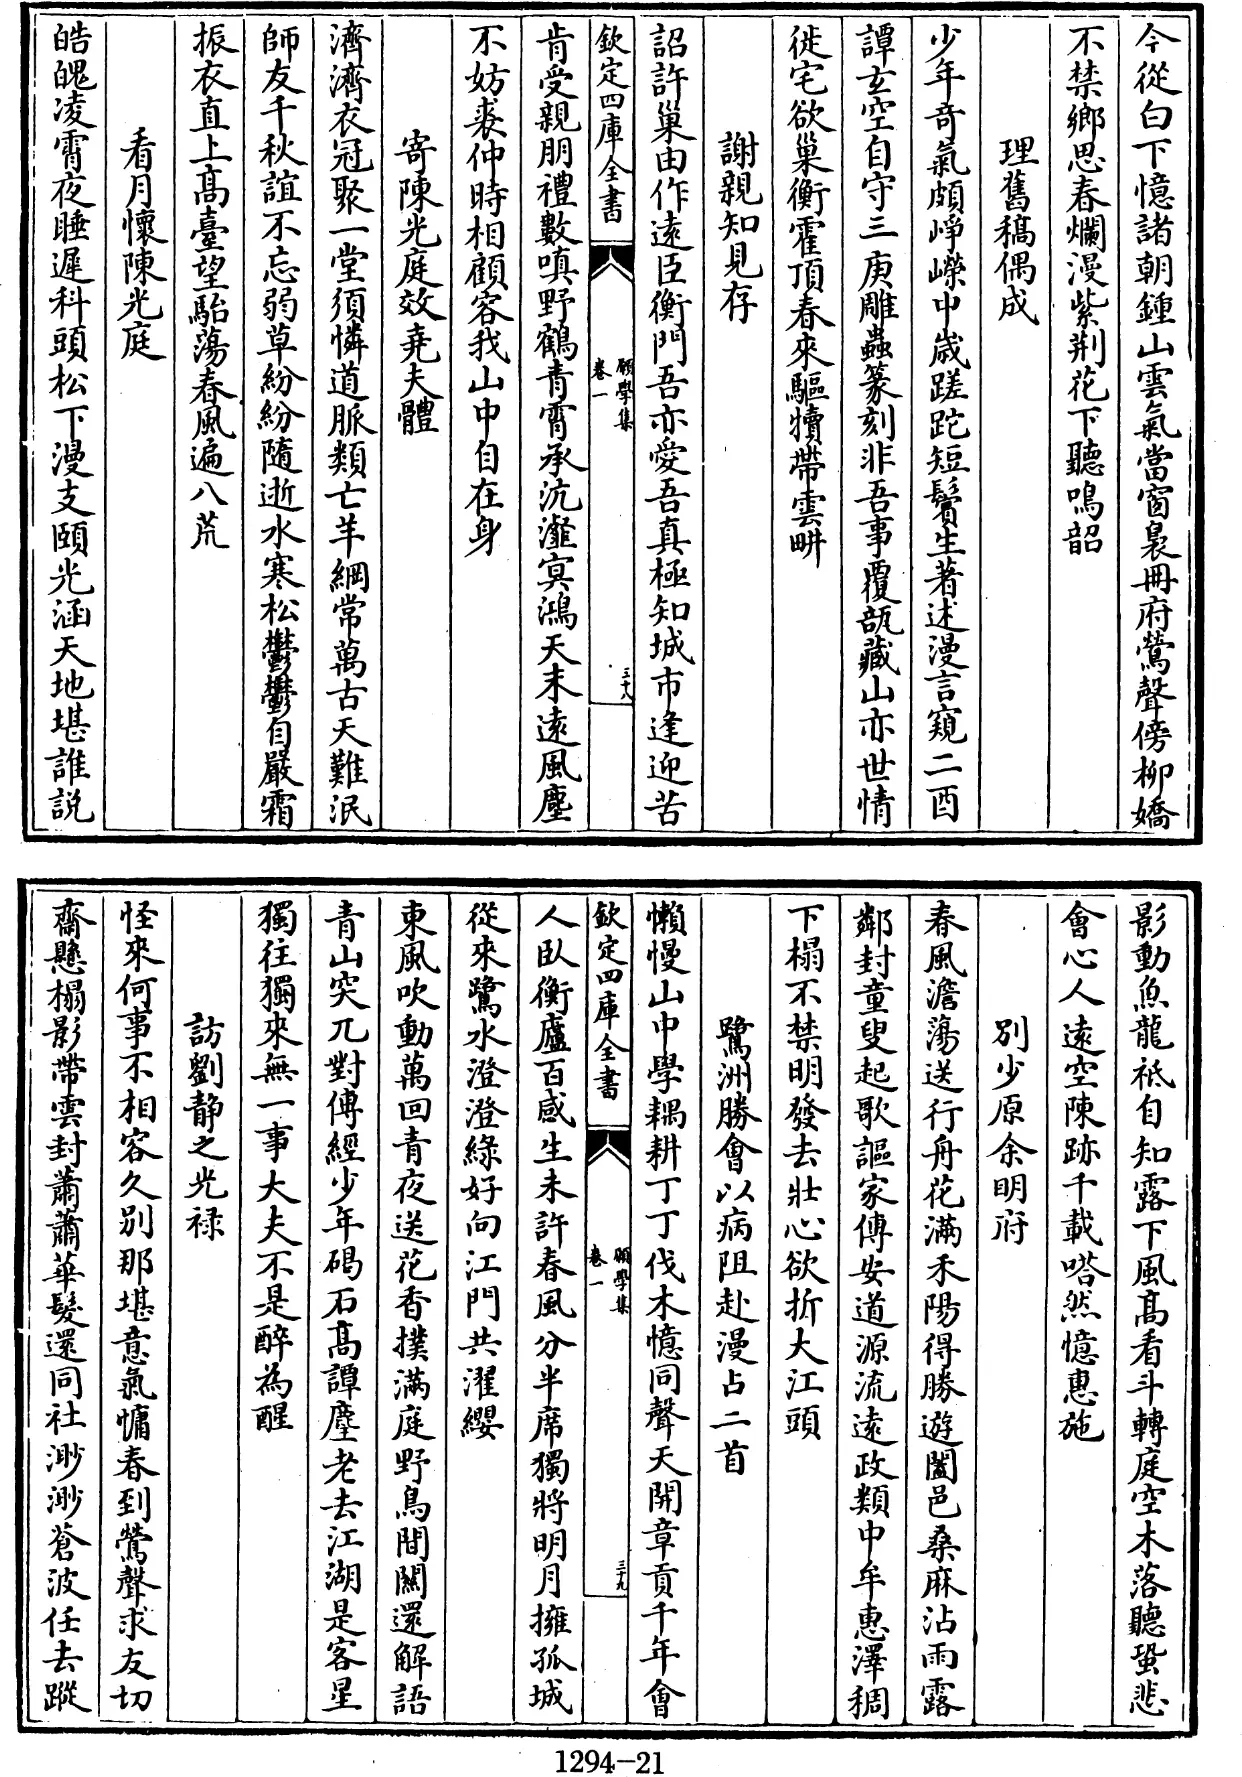 今從白下憶諸朝鍾山雲氣當窗裊冊府鶯聲傍柳嬌
不禁鄉思春爛漫紫荆花下聽鳴韶
理舊稿偶成
少年奇氣頗崢嶸中歲蹉跎短鬢生著述漫言窺二酉
譚玄空自守三庚雕蟲篆刻非吾事覆瓿藏山亦世情
徙宅欲巢衡霍頂春來驅犢帶雲畊
謝親知見存
詔許巢由作遠臣衡門吾亦愛吾真極知城市逢迎苦
欽定四庫全書
願學集
卷一
三十八
肯受親朋禮數嗔野鶴青霄承沆瀣冥鴻天末遠風塵
不妨裘仲時相顧容我山中自在身
寄陳光庭效堯夫體
濟濟衣冠聚一堂須憐道脈類亡羊綱常萬古天難泯
師友千秋誼不忘弱草紛紛隨逝水寒松鬱鬱自嚴霜
振衣直上髙臺望駘蕩春風遍八荒
看月懷陳光庭
皓魄凌霄夜睡遲科頭松下漫支頤光涵天地堪誰説
影動魚龍袛自知露下風髙看斗轉庭空木落聽蛩悲
會心人遠空陳跡千載嗒然憶惠施
別少原余明府
春風澹蕩送行舟花滿禾陽得勝遊闔邑桑麻沾雨露
鄰封童叟起歌謳家傳安道源流遠政類中牟惠澤稠
下榻不禁明發去壯心欲折大江頭
鷺洲勝會以病阻赴漫占二首
懶慢山中學耦耕丁丁伐木憶同聲天開章貢千年會
欽定四庫全書
願學集
卷一
三十九
人臥衡廬百感生未許春風分半席獨將明月擁孤城
從來鷺水澄澄綠好向江門共濯纓
東風吹動萬回青夜送花香撲滿庭野鳥間關還解語
青山突兀對傳經少年碣石髙譚麈老去江湖是客星
獨往獨來無一事大夫不是醉為醒
訪劉靜之光禄
怪來何事不相容久別那堪意氣慵春到鶯聲求友切
齋懸榻影帶雲封蕭蕭華髮還同社渺渺蒼波任去蹤
1294-21